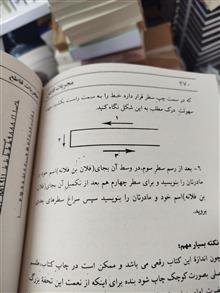 ۲۷۰
مجربات
که در سمت چپ سطر قرار دارد خط را به سمت راست بکشید
سهولت درک مطلب به این شکل نگاه کنید.
۱
۲
۳
۶- بعد از رسم سطر سوم، در وسط آن بجای (فلان بن فلانه) اسم خود و
مادرتان را بنویسید و برای سطر چهارم هم بعد از تکمیل آن بجای
بن فلانه) اسم خود و مادرتان را بنویسید سپس سراغ سطرهای بعدی
بروید.
نکته بسیار مهم:
چون اندازهٔ این کتاب رقعی می باشد و ممکن است در چاپ کتاب، طلسم
بصورت کوچک چاپ شود بنده برای اینکه از نعمت این تحفهٔ بزرگ